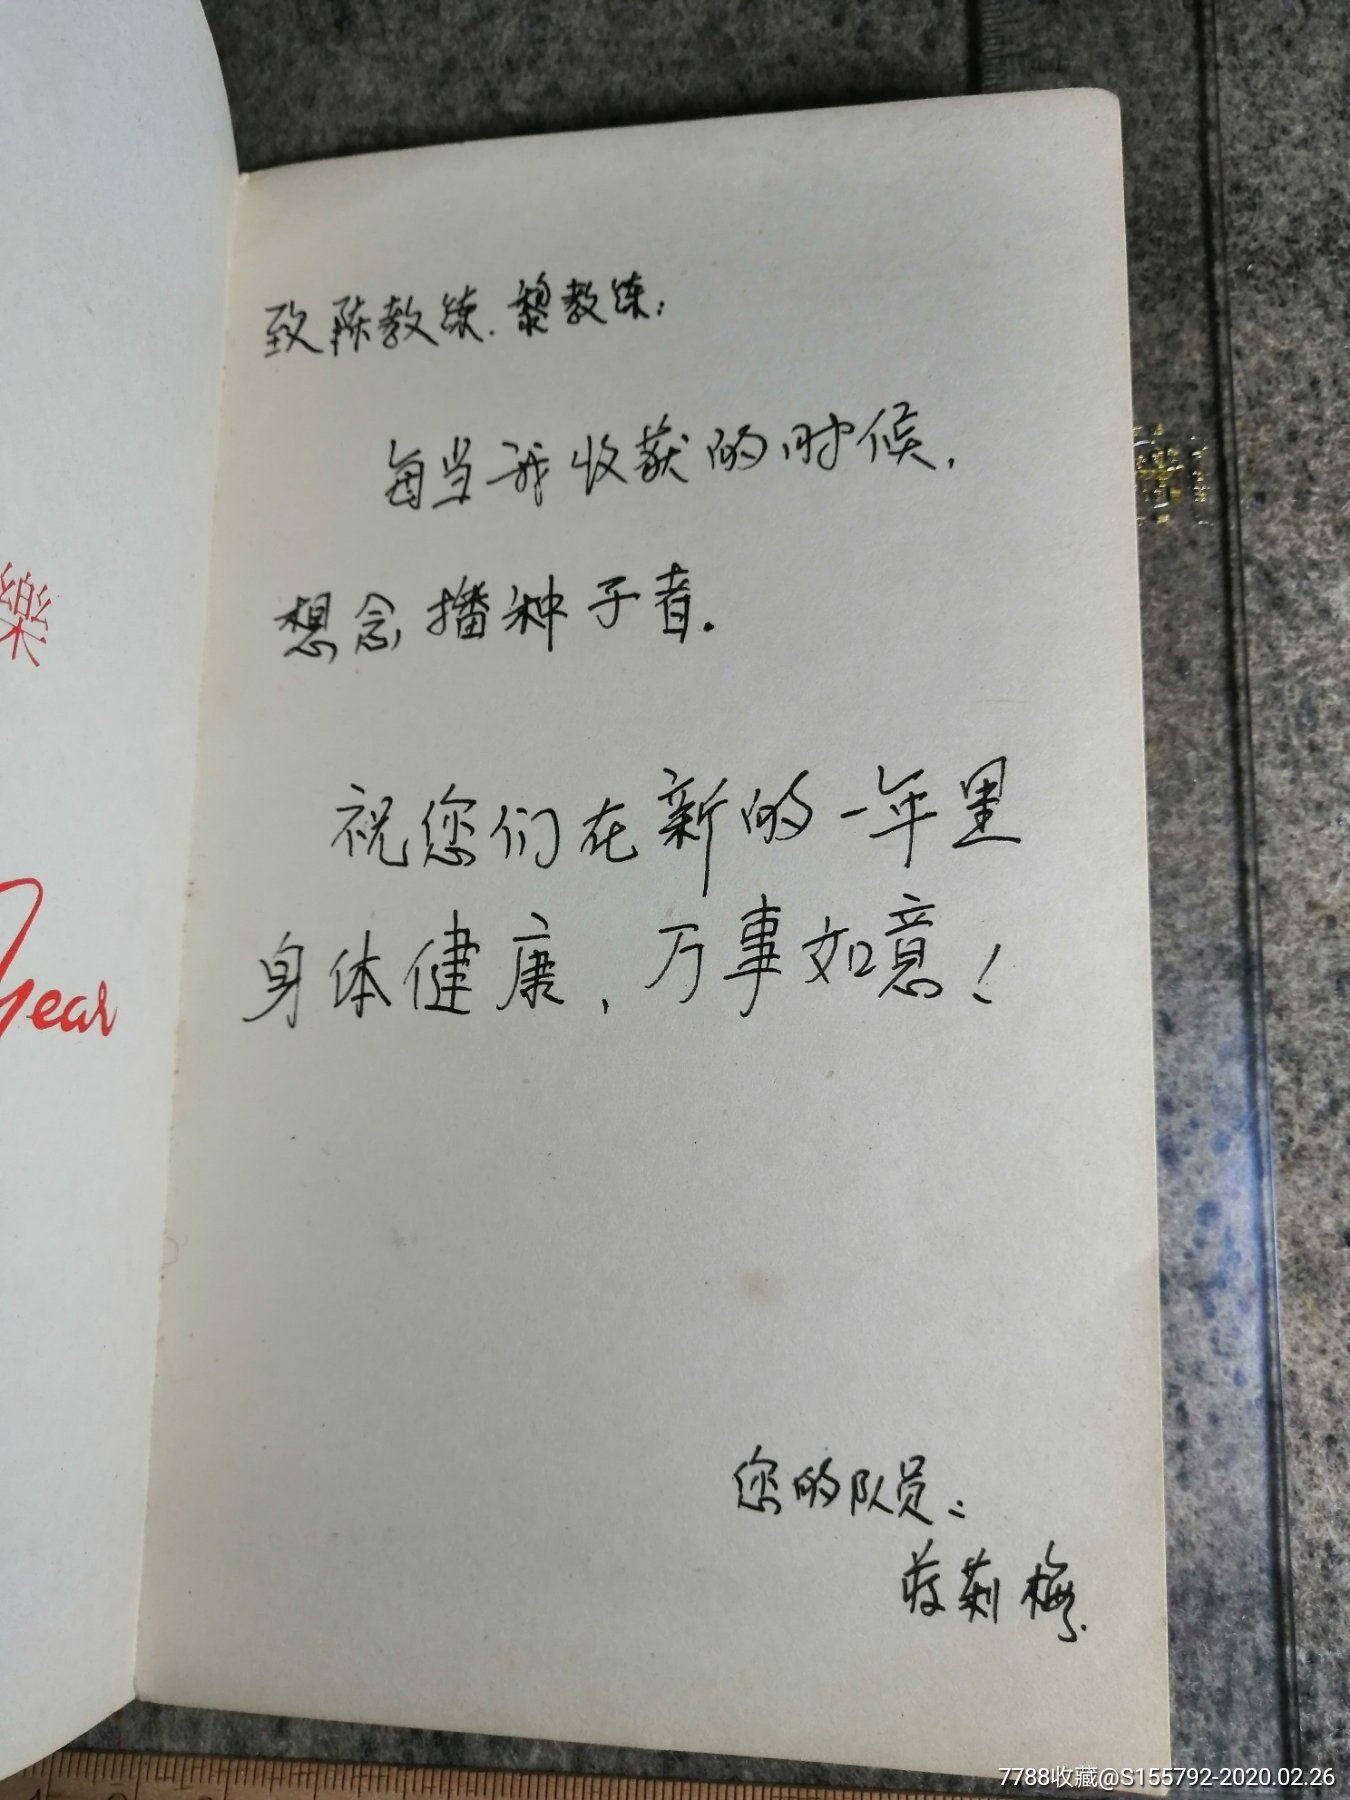 樂
Year
致陈教练、黎教练:
每当我收获的时候,
想念播种子者.
祝您们在新的一年里
身体健康,万事如意!
您的队员:
蒋莉梅.
7788收藏@S155792-2020.02.26